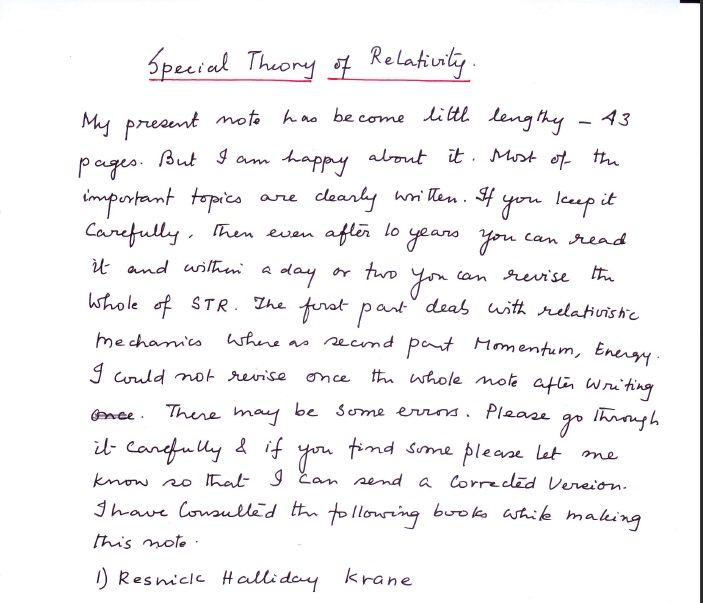 Special Theory of Relativity.
My present note has become little lengthy – 43
pages. But I am happy about it. Most of the
important topics are clearly written. If you keep it
Carefully, Then even after 10 years you can read
it and within a day or two you can revise the
Whole of STR. The first part deals with relativistic
mechanics where as second part Momentum, Energy.
I could not revise once the whole note after writing
once. There may be some errors. Please go through
it carefully & if you find some please let me
know so that I can send a Corrected Version.
I have Consulted the following books while making
this note.
1) Resnick Halliday Krane